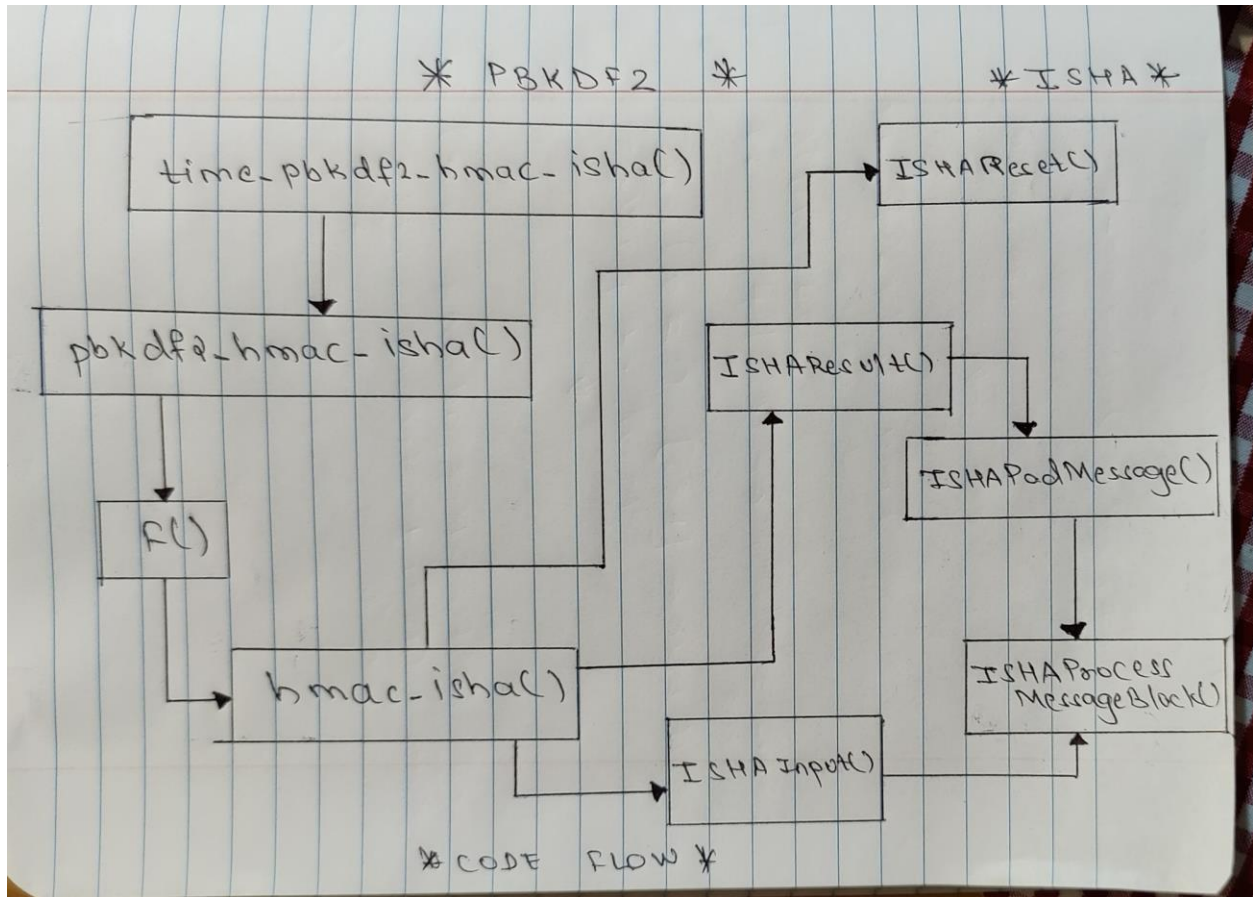 * PBKDF2 *
* ISHA *
time_pbkdf2_hmac_isha()
ISHAReset()
pbkdf2_hmac_isha()
ISHAResult()
ISHAPadMessage()
F()
hmac_isha()
ISHAProcess
MessageBlock()
ISHAInput()
* CODE FLOW *